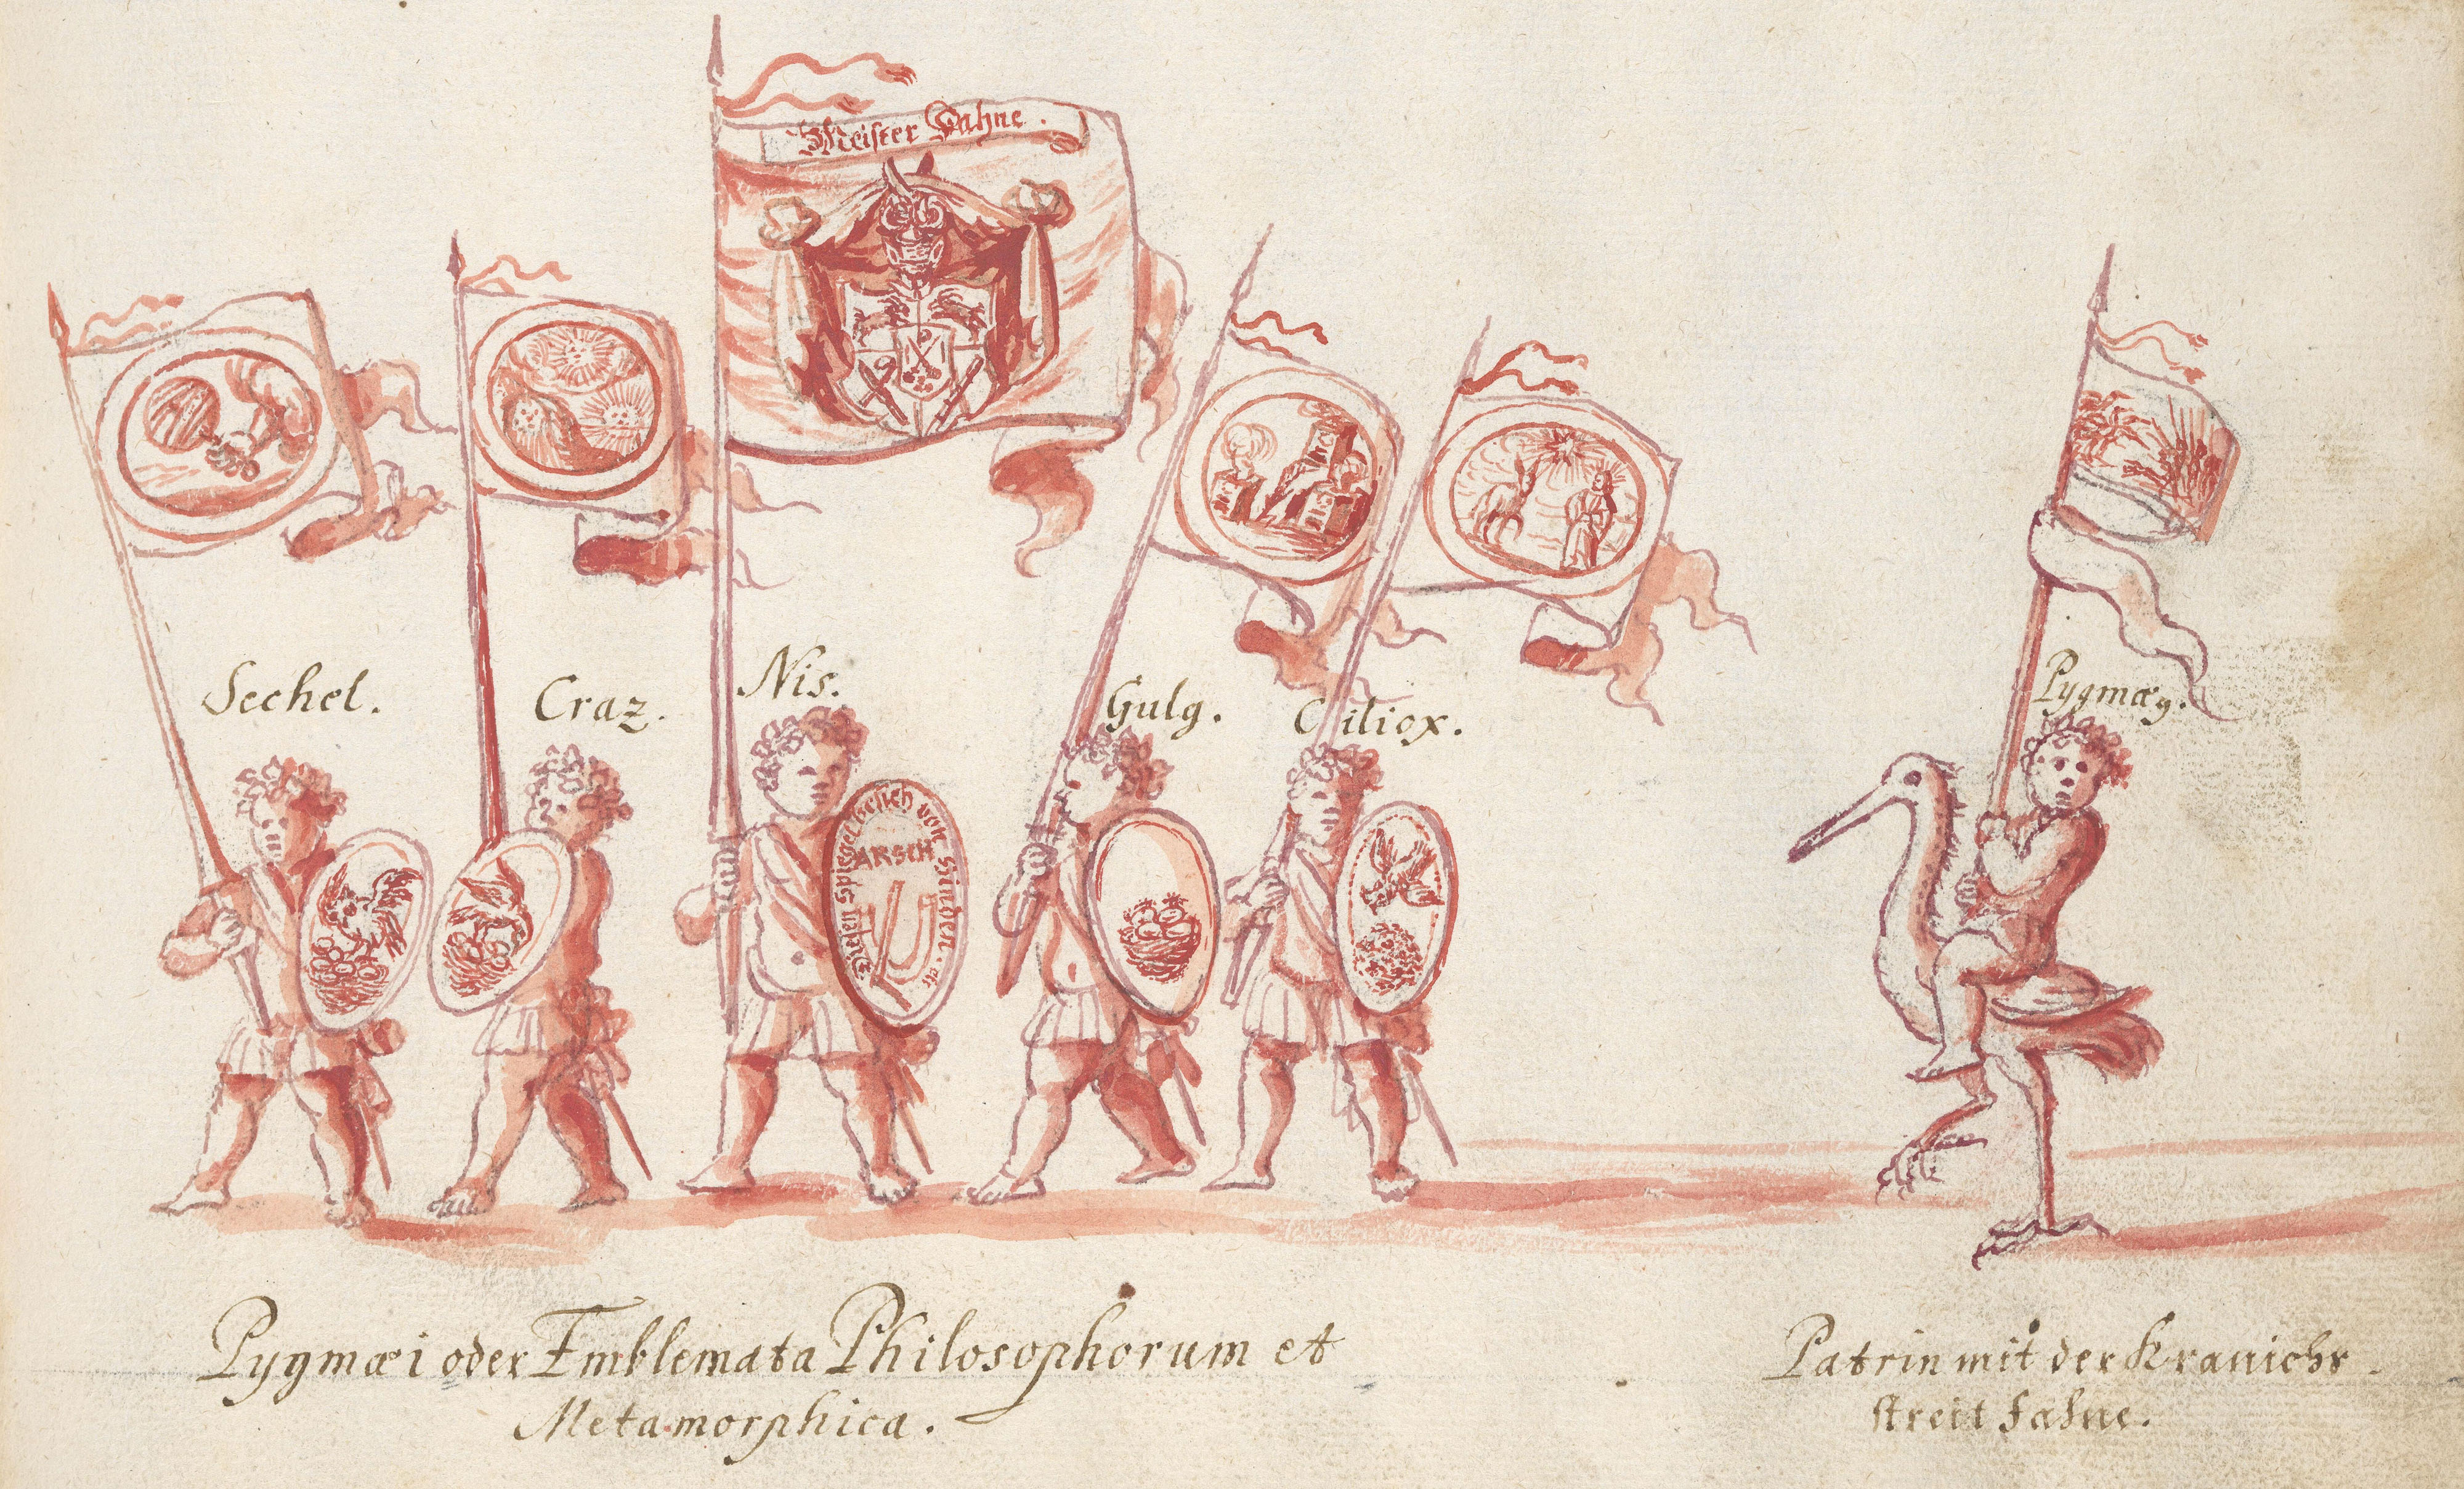 Meister Fahne.
Sechel.
Craz.
Nis.
Gulg.
Ciliox.
Pygmæ9.
Diesen Spiegel hab ich von hinden
ARSCH
Pygmæi oder Emblemata Philosophorum et
Metamorphica.
Patrin mit der Kranichs
streit Fahne.